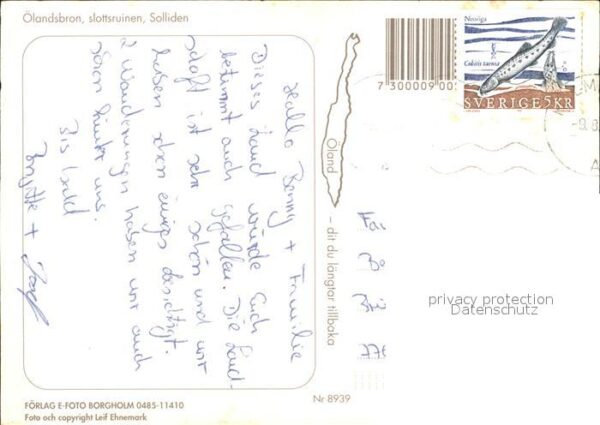 Ölandsbron, slottsruinen, Solliden
Hallo Benny + Familie
Dieses Land würde Euch
bestimmt auch gefallen. Die Land-
schaft ist sehr schön und wir
haben schon einiges besichtigt.
2 Wanderungen haben wir auch
schon hinter uns.
Bis bald
Brigitte +
Öland – dit du längtar tillbaka
7 300009 00
Neoriga
Cobitis taenia
SVERIGE 5KR
privacy protection
Datenschutz
FÖRLAG E-FOTO BORGHOLM 0485-11410
Foto och copyright Leif Ehnemark
Nr 8939